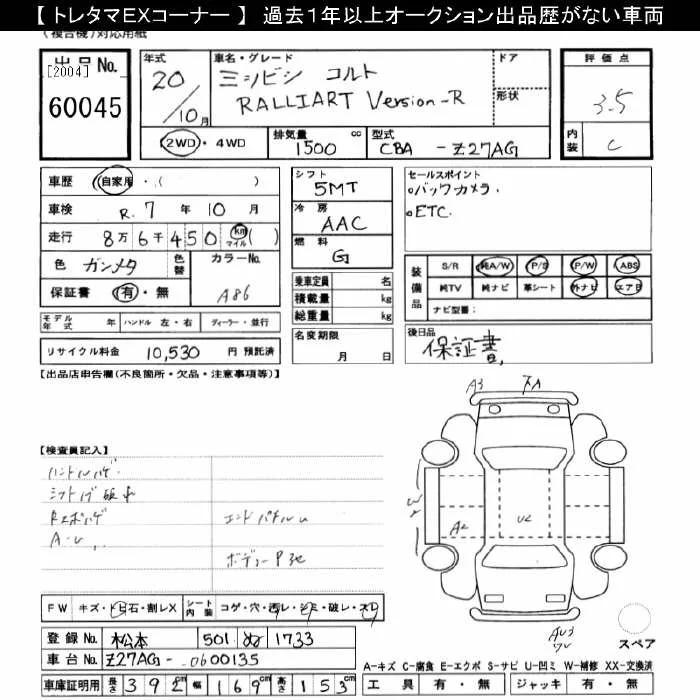 【 トレタマEXコーナー 】 過去1年以上オークション出品歴がない車両
(複合機)対応用紙
出品No. [2004] 60045
年式 20/10月
車名・グレード ミツビシ コルト
RALLIART Version-R
ドア
形状
評価点 3.5
内装 C
2WD・4WD 排気量 1500 cc 型式 CBA - Z27AG
車歴 自家用・( )
車検 R. 7 年 10 月
走行 8万6千450 km マイル ( )
色 ガンメタ 色替 カラーNo. A86
保証書 有・無
モデル年式 年 ハンドル 左・右 ディーラー・並行
リサイクル料金 10,530 円 預託済
シフト 5MT
冷房 AAC
燃料 G
乗車定員 名
積載量 kg
総重量 kg
名変期限 月 日
セールスポイント
・バックカメラ.
・ETC.
装備品 S/R 純A/W P/S P/W ABS
純TV 純ナビ 革シート 外ナビ エアB
ナビ型番:
後日品
保証書,
【出品店申告欄(不良箇所・欠品・注意事項等)】
【検査員記入】
ハンドルハゲ.
エンドパネルU
A-U
A3
A2
U2
FW キズ・トビ石・割レX シート内装 コゲ・穴・汚レ・シミ・破レ・スレ
登録No. 松本 501 ぬ 1733
車台No. Z27AG-0600135
車庫証明用 長さ 392cm 幅 169cm 高さ 153cm
スペア
A-キズ C-腐食 E-エクボ S-サビ U-凹ミ W-補修 XX-交換済
工具 有・無 ジャッキ 有・無